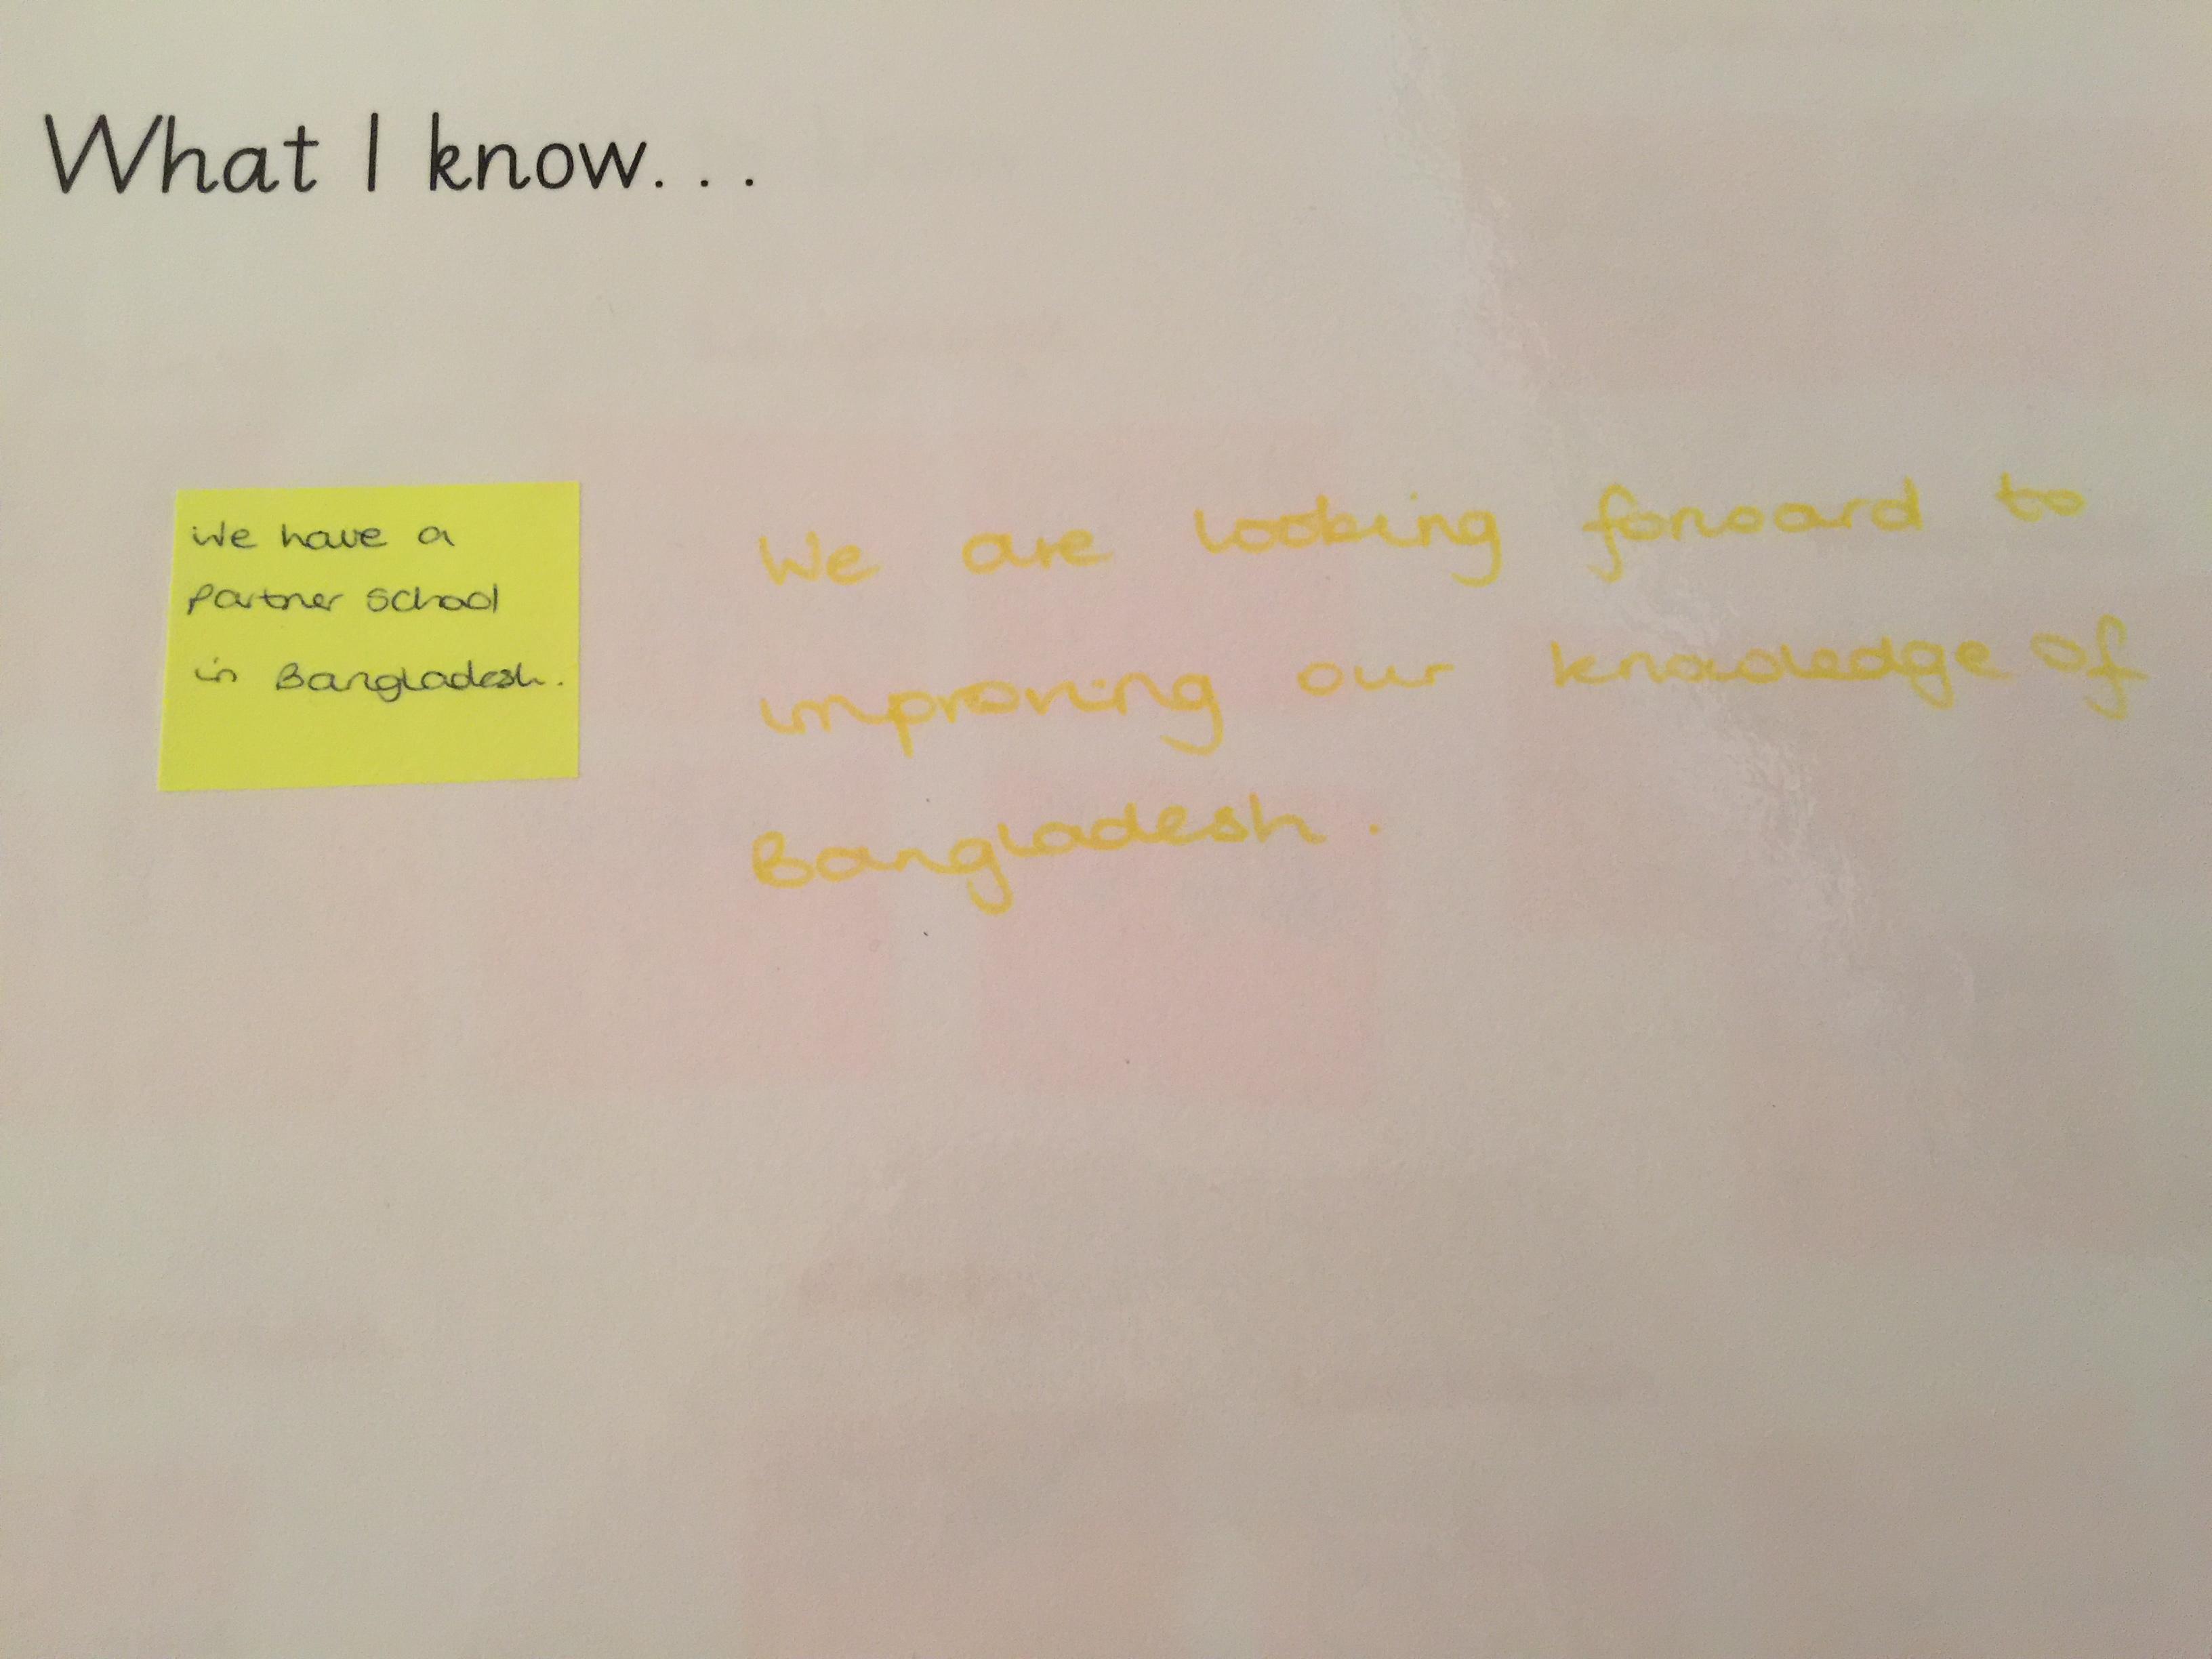 What I know...
We have a
partner school
in Bangladesh.
We are looking forward to
improving our knowledge of
Bangladesh.